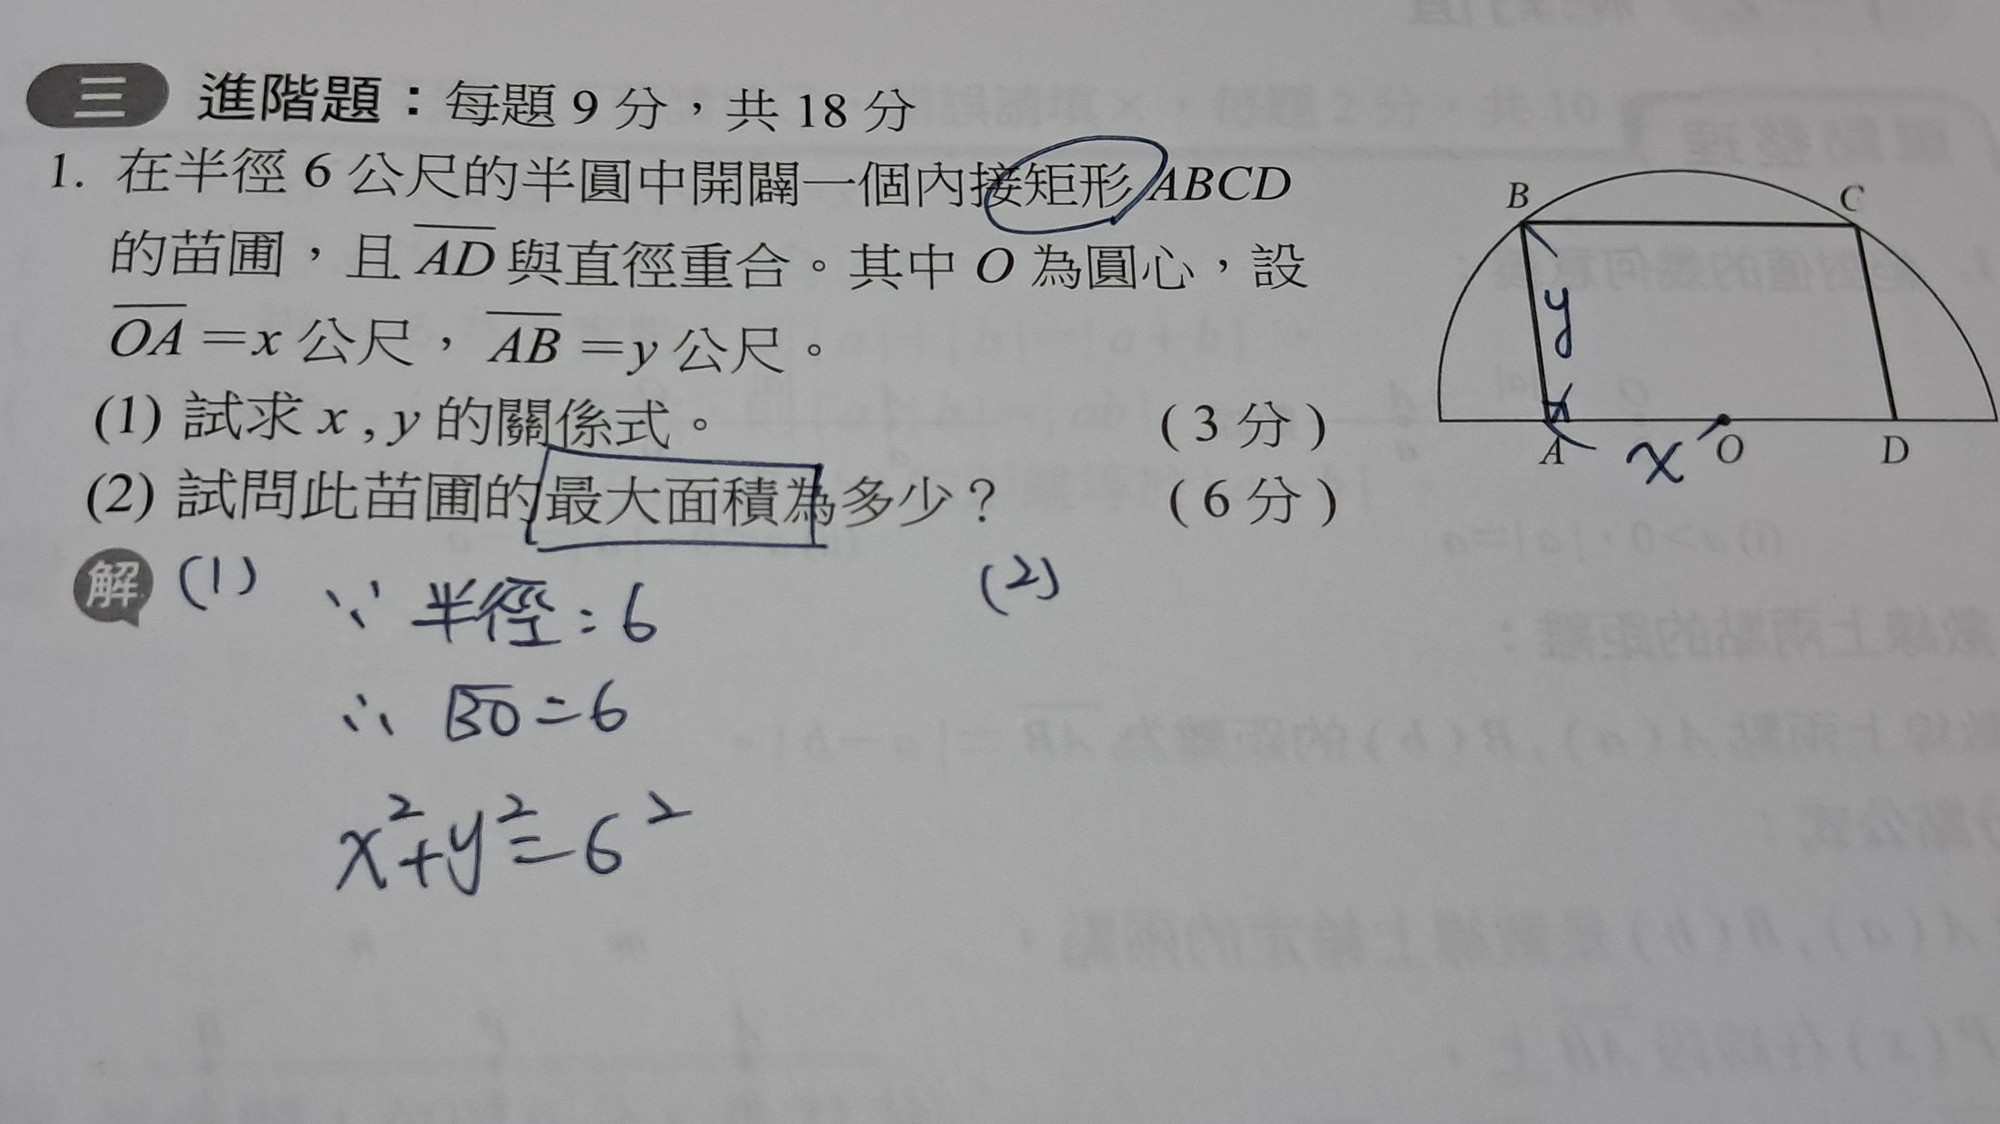 三 進階題：每題 9 分，共 18 分
1. 在半徑 6 公尺的半圓中開闢一個內接矩形 ABCD
的苗圃，且 AD 與直徑重合。其中 O 為圓心，設
OA＝x 公尺，AB＝y 公尺。
(1) 試求 x , y 的關係式。 ( 3 分 )
(2) 試問此苗圃的最大面積為多少？ ( 6 分 )
B C
y
A x O D
解 (1) ∵ 半徑 = 6
∴ BO = 6
x²+y²=6²
(2)